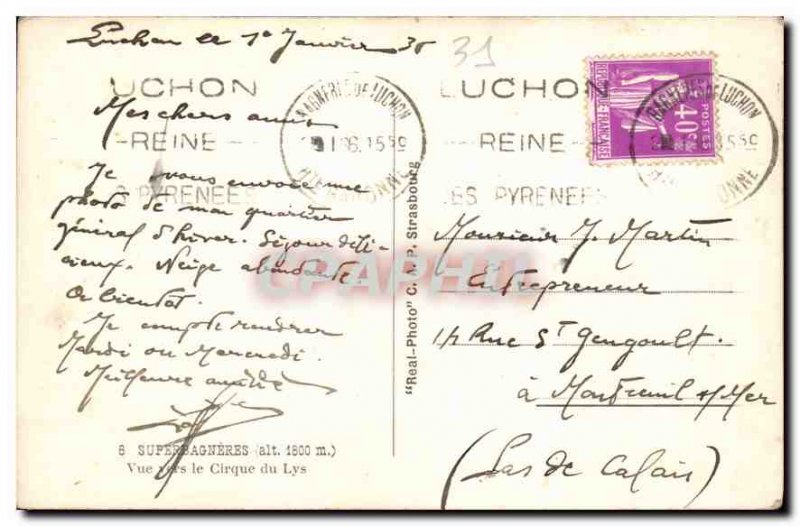 Luchon le 1er Janvier 36
31
LUCHON
REINE
DES PYRENEES
BAGNERES DE LUCHON
LUCHON
REINE
DES PYRENEES
BAGNERES DE LUCHON
REPUBLIQUE FRANÇAISE
40c
POSTES
Mes chers amis
Je vous envoie une
photo de mon quartier
général d'hiver. Séjour déli-
cieux. Neige abondante.
A bientôt.
Je compte rentrer
Mardi ou Mercredi.
Meilleures amitiés
6 SUPERBAGNÈRES (alt. 1800 m.)
Vue vers le Cirque du Lys
"Real-Photo" C. A. P. Strasbourg
Monsieur J. Martin
Entrepreneur
Rue St Gengoult
à Montreuil s/Mer
(Pas de Calais)
CPAPHIL